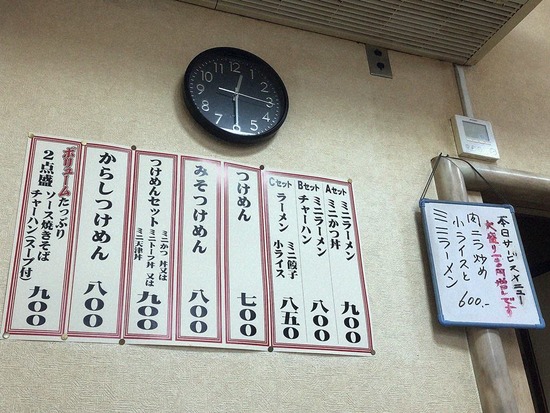 12
1
2
3
4
5
6
7
8
9
10
11
Aセット
ミニラーメン
ミニかつ丼
九〇〇
Bセット
ミニラーメン
チャーハン
八〇〇
Cセット
ラーメン
ミニ餃子
小ライス
八五〇
つけめん
七〇〇
みそつけめん
八〇〇
つけめんセット
ミニかつ丼又は
ミニトーフ丼又は
ミニ天津丼
九〇〇
からしつけめん
八〇〇
ボリュームたっぷり
2点盛
ソース焼きそば
チャーハン(スープ付)
九〇〇
本日サービスメニュー
肉ニラ炒め
小ライスと
ミニラーメン
600.-